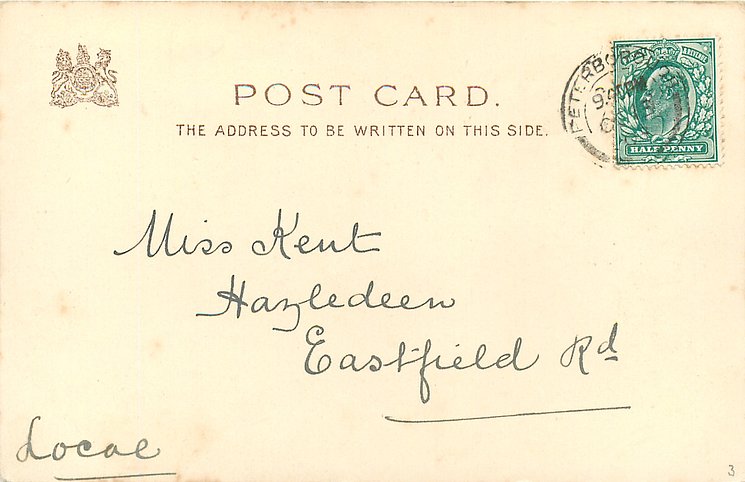 POST CARD.
THE ADDRESS TO BE WRITTEN ON THIS SIDE.
PETERBORO
HALF PENNY
Miss Kent
Hazledeen
Eastfield Rd
Local
3